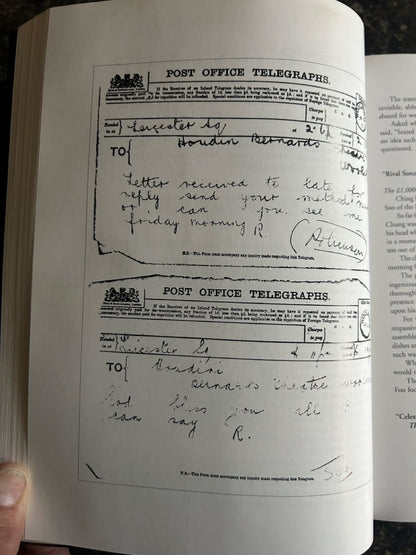 POST OFFICE TELEGRAPHS.
If the Receiver of an Inland Telegram doubts its accuracy, he may have it repeated on payment of half the
amount originally paid for its transmission, any fraction of 1d. less than ½d. being reckoned as ½d.; and if it be found
that there was any inaccuracy, the amount paid for repetition will be refunded. Special conditions are applicable to the repetition of Foreign Telegrams.
Charges
to pay
s. d.
Handed
in at
Leicester Sq
at
TO
Houdini Bernards
Letter received to late to
reply send your method
or can you see me
friday morning
R.
N.B.—This Form must accompany any inquiry made respecting this Telegram.
POST OFFICE TELEGRAPHS.
If the Receiver of an Inland Telegram doubts its accuracy, he may have it repeated on payment of half the
amount originally paid for its transmission, any fraction of 1d. less than ½d. being reckoned as ½d.; and if it be found
that there was any inaccuracy, the amount paid for repetition will be refunded. Special conditions are applicable to the repetition of Foreign Telegrams.
Charges
to pay
s. d.
Handed
in at
Leicester Sq
TO
Houdini
Bernards theatre
God bless you all I
can say
R.
N.B.—This Form must accompany any inquiry made respecting this Telegram.
The statem
invisible, alth
absurd for wa
Asked wh
said, "Stated
no idea such
questioned.
"Rival Sorc
The £1,000
Ching
Soo of the
So far
Chung was
his head wh
in a momen
ten out of
The ch
designed to
ingenious
thorough
presence
labour in
Foo v
impassive
assembled
dishes at
such was
What
would r
The
Foo foo
"Celes